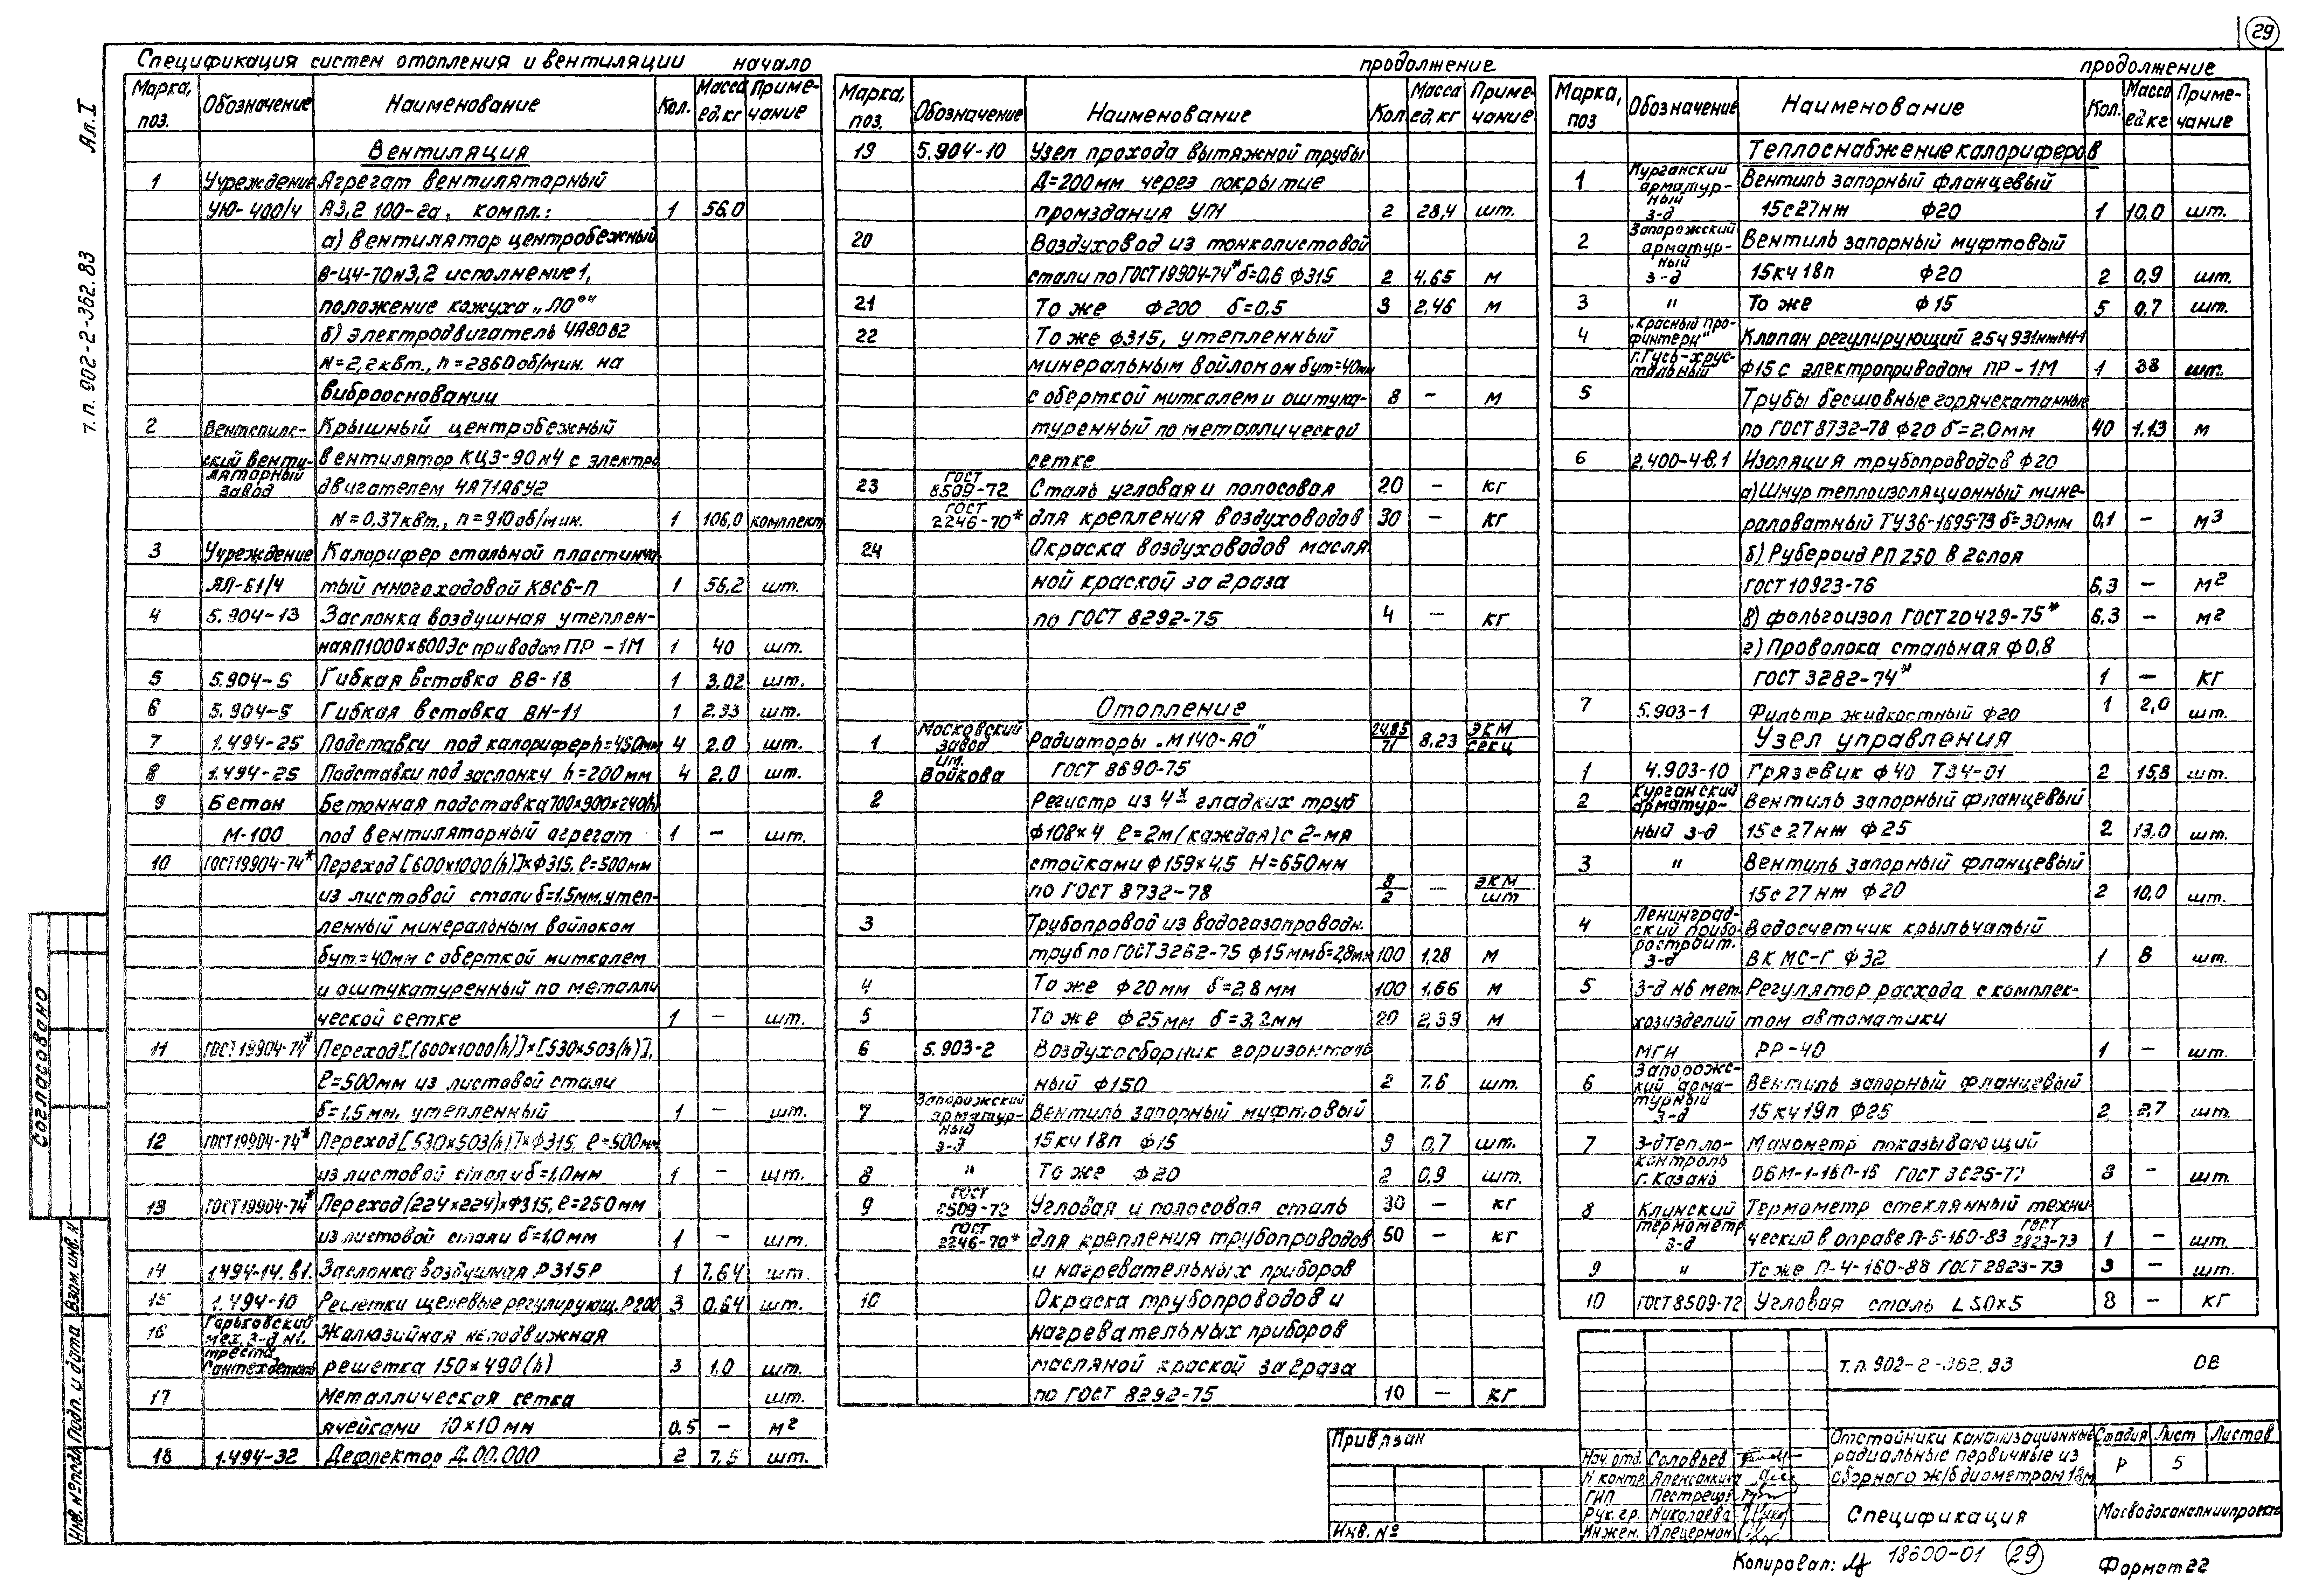 29
Спецификация систем отопления и вентиляции начало
Марка, поз. Обозначение Наименование Кол. Масса ед.кг Приме-чание
Вентиляция
1 Учреждение Агрегат вентиляторный
УЮ-400/4 А3,2 100-2а, компл.: 1 56.0
а) вентилятор центробежный
В-Ц4-70 N3,2 исполнение 1,
положение кожуха „Л0°"
б) электродвигатель 4А80В2
N=2,2квт., n=2860 об/мин. на
виброосновании
2 Вентспилс- Крышный центробежный
ский венти- вентилятор КЦ3-90 N4 с электро
ляторный завод двигателем 4А71А6У2
N=0,37квт., n=910 об/мин. 1 106,0 комплект
3 Учреждение Калорифер стальной пластинча-
ЯЛ-61/4 тый многоходовой КВСБ-П 1 56,2 шт.
4 5.904-13 Заслонка воздушная утеплен-
ная П1000×600Э с приводом ПР-1М 1 40 шт.
5 5.904-5 Гибкая вставка ВВ-18 1 3.02 шт.
6 5.904-5 Гибкая вставка ВН-11 1 2.93 шт.
7 1.494-25 Подставки под калорифер h=450мм 4 2.0 шт.
8 1.494-25 Подставки под заслонку h=200мм 4 2,0 шт.
9 Бетон Бетонная подставка 700×900×240(h)
М-100 под вентиляторный агрегат 1 — шт.
10 ГОСТ19904-74* Переход [600×1000(h)]×Ф315, ℓ=500мм
из листовой стали δ=1.5мм, утеп-
ленный минеральным войлоком
δут.=40мм с оберткой миткалем
и оштукатуренный по металли
ческой сетке 1 — шт.
11 ГОСТ 19904-74* Переход [(600×1000(h)]×[530×503(h)],
ℓ=500мм из листовой стали
δ=1.5мм, утепленный 1 — шт.
12 ГОСТ19904-74* Переход [530×503(h)]×Ф315, ℓ=500мм
из листовой стали δ=1,0мм 1 — шт.
13 ГОСТ19904-74* Переход (224×224)×Ф315, ℓ=250мм
из листовой стали δ=1,0мм 1 — шт.
14 1.494-14.В1. Заслонка воздушная Р315Р 1 7.64 шт.
15 1.494-10 Решетки щелевые регулирующ. Р200 3 0.64 шт.
16 Горьковский мех. з-д N1. Жалюзийная неподвижная
треста Сантехдеталь решетка 150×490(h) 3 1.0 шт.
17 Металлическая сетка шт.
ячейками 10×10мм 0.5 — м²
18 1.494-32 Дефлектор Д.00.000 2 7,5 шт.
продолжение
Марка, поз. Обозначение Наименование Кол. Масса ед.кг Приме-чание
19 5.904-10 Узел прохода вытяжной трубы
Д=200мм через покрытие
промздания УП1 2 28,4 шт.
20 Воздуховод из тонколистовой
стали по ГОСТ19904-74* δ=0.6 Ф315 2 4.65 м
21 То же Ф200 δ=0,5 3 2,46 м
22 То же Ф315, утепленный
минеральным войлоком δут=40мм
с оберткой миткалем и оштука- 8 — м
туренный по металлической
сетке
23 ГОСТ 8509-72 Сталь угловая и полосовая 20 — кг
ГОСТ 2246-70* для крепления воздуховодов 30 — кг
24 Окраска воздуховодов масля
ной краской за 2раза
по ГОСТ 8292-75 4 — кг
Отопление
1 Московский завод Радиаторы „М140-АО" 24,85/71 8,23 экм/секц
им. Войкова ГОСТ 8690-75
2 Регистр из 4х гладких труб
Ф108×4 ℓ=2м (каждая) с 2-мя
стойками Ф159×4,5 Н=650мм
по ГОСТ 8732-78 8/2 — экм/шт
3 Трубопровод из водогазопроводн.
труб по ГОСТ 3262-75 Ф15мм δ=2,8мм 100 1,28 м
4 То же Ф20мм δ=2,8мм 100 1.66 м
5 То же Ф25мм δ=3,2мм 20 2,39 м
6 5.903-2 Воздухосборник горизонталь
ный Ф150 2 7.6 шт.
7 Запорожский арматур- Вентиль запорный муфтовый
ный з-д 15кч 18п Ф15 9 0,7 шт.
8 " То же Ф20 2 0,9 шт.
9 ГОСТ 8509-72 Угловая и полосовая сталь 30 — кг
ГОСТ 2246-70* для крепления трубопроводов 50 — кг
и нагревательных приборов
10 Окраска трубопроводов и
нагревательных приборов
масляной краской за 2раза
по ГОСТ 8292-75 10 — кг
продолжение
Марка, поз Обозначение Наименование Кол. Масса ед кг Приме-чание
Теплоснабжение калориферов
1 Курганский арматур- Вентиль запорный фланцевый
ный з-д 15с27нж Ф20 1 10,0 шт.
2 Запорожский арматур- Вентиль запорный муфтовый
ный з-д 15кч 18п Ф20 2 0,9 шт.
3 " То же Ф15 5 0,7 шт.
4 „Красный Про- финтерн" Клапан регулирующий 25ч931нжМ1-1
г.Гусь-хрус- тальный Ф15 с электроприводом ПР-1М 1 38 шт.
5 Трубы бесшовные горячекатанные
по ГОСТ 8732-78 Ф20 δ=2.0мм 40 1.13 м
6 2,400-4-В.1 Изоляция трубопроводов Ф20
а) Шнур теплоизоляционный мине-
раловатный ТУ36-1695-73 δ=30мм 0,1 — м3
б) Рубероид РП 250 в 2слоя
ГОСТ 10923-76 6,3 — м2
в) фольгоизол ГОСТ 20429-75* 6,3 — м2
г) Проволока стальная Ф0,8
ГОСТ 3282-74* 1 — кг
7 5.903-1 Фильтр жидкостный Ф20 1 2,0 шт.
Узел управления
1 4.903-10 Грязевик Ф40 Т34-01 2 15,8 шт.
2 Курганский арматур- Вентиль запорный фланцевый
ный з-д 15с27нж Ф25 2 13,0 шт.
3 " Вентиль запорный фланцевый
15с27нж Ф20 2 10,0 шт.
4 Ленинград- ский прибо- Водосчетчик крыльчатый
ростроит. з-д ВКМС-Г Ф32 1 8 шт.
5 З-д N6 мет. Регулятор расхода с комплек-
хозизделий том автоматики
МГИ РР-40 1 — шт.
6 Запорожс- кий арма- Вентиль запорный фланцевый
турный з-д 15кч19п Ф25 2 2,7 шт.
7 З-д Тепло- Манометр показывающий
контроль г.Казань ОБМ-1-160-16 ГОСТ 8625-77 3 — шт.
8 Клинский Термометр стеклянный техни-
термометр з-д ческий в оправе П-5-160-83 ГОСТ 2823-73 1 — шт.
9 " То же П-4-160-88 ГОСТ 2823-73 3 — шт.
10 ГОСТ 8509-72 Угловая сталь L50×5 8 — кг
Ал. I
т. п. 902-2-362.83
Согласовано
Взам. инв. N
Подп. и дата
Инв. № подл.
Привязан
Инв. №
т.п. 902-2-362.83 ОВ
Нач. отд. Соловьев
Н контр.
ГИП
Рук. гр. Николаева
Инжен.
Отстойники канализационные
радиальные первичные из
сборного ж/б диаметром 18м
Стадия Лист Листов
Р 5
Спецификация
Мосводоканалниипроект
Копировал: 18600-01 29 Формат 22